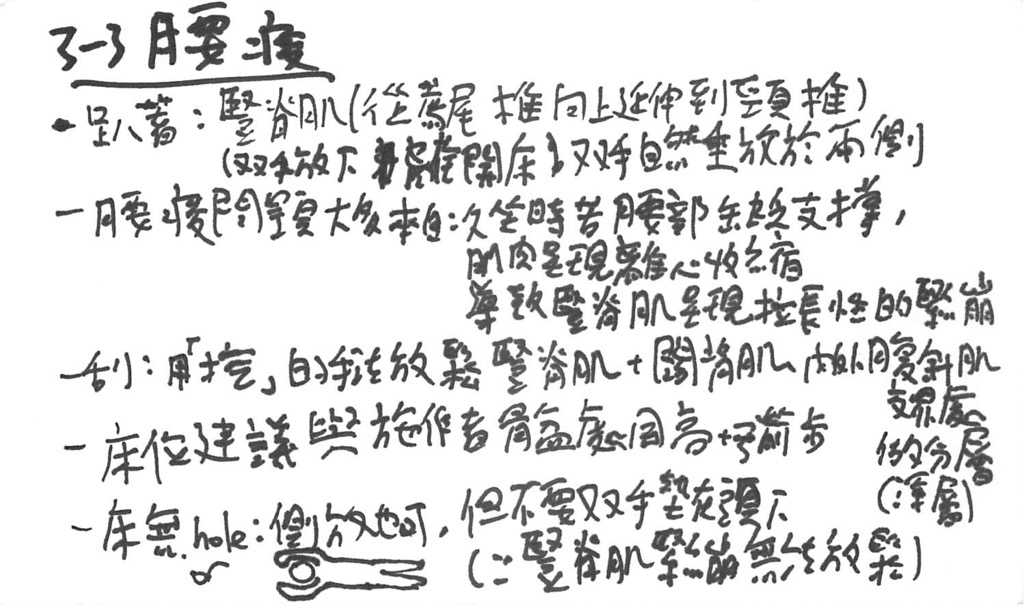 3-3 腰痠
• 趴著：豎脊肌(從薦尾椎向上延伸到頸椎)
(双手放下 開床) 双手自然垂放於兩側
- 腰痠問題大多來自：久坐時若腰部缺乏支撐，
肌肉呈現離心收縮
導致豎脊肌呈現拉長性的緊繃
- 刮：用「挖」的手法放鬆豎脊肌+闊背肌、內外腹斜肌
交界處
做分層
(淺層)
- 床位建議與施作者骨盆處同高+弓箭步
- 床無 hole：側放也可，但不要双手墊在頭下
(∵豎脊肌緊繃無法放鬆)